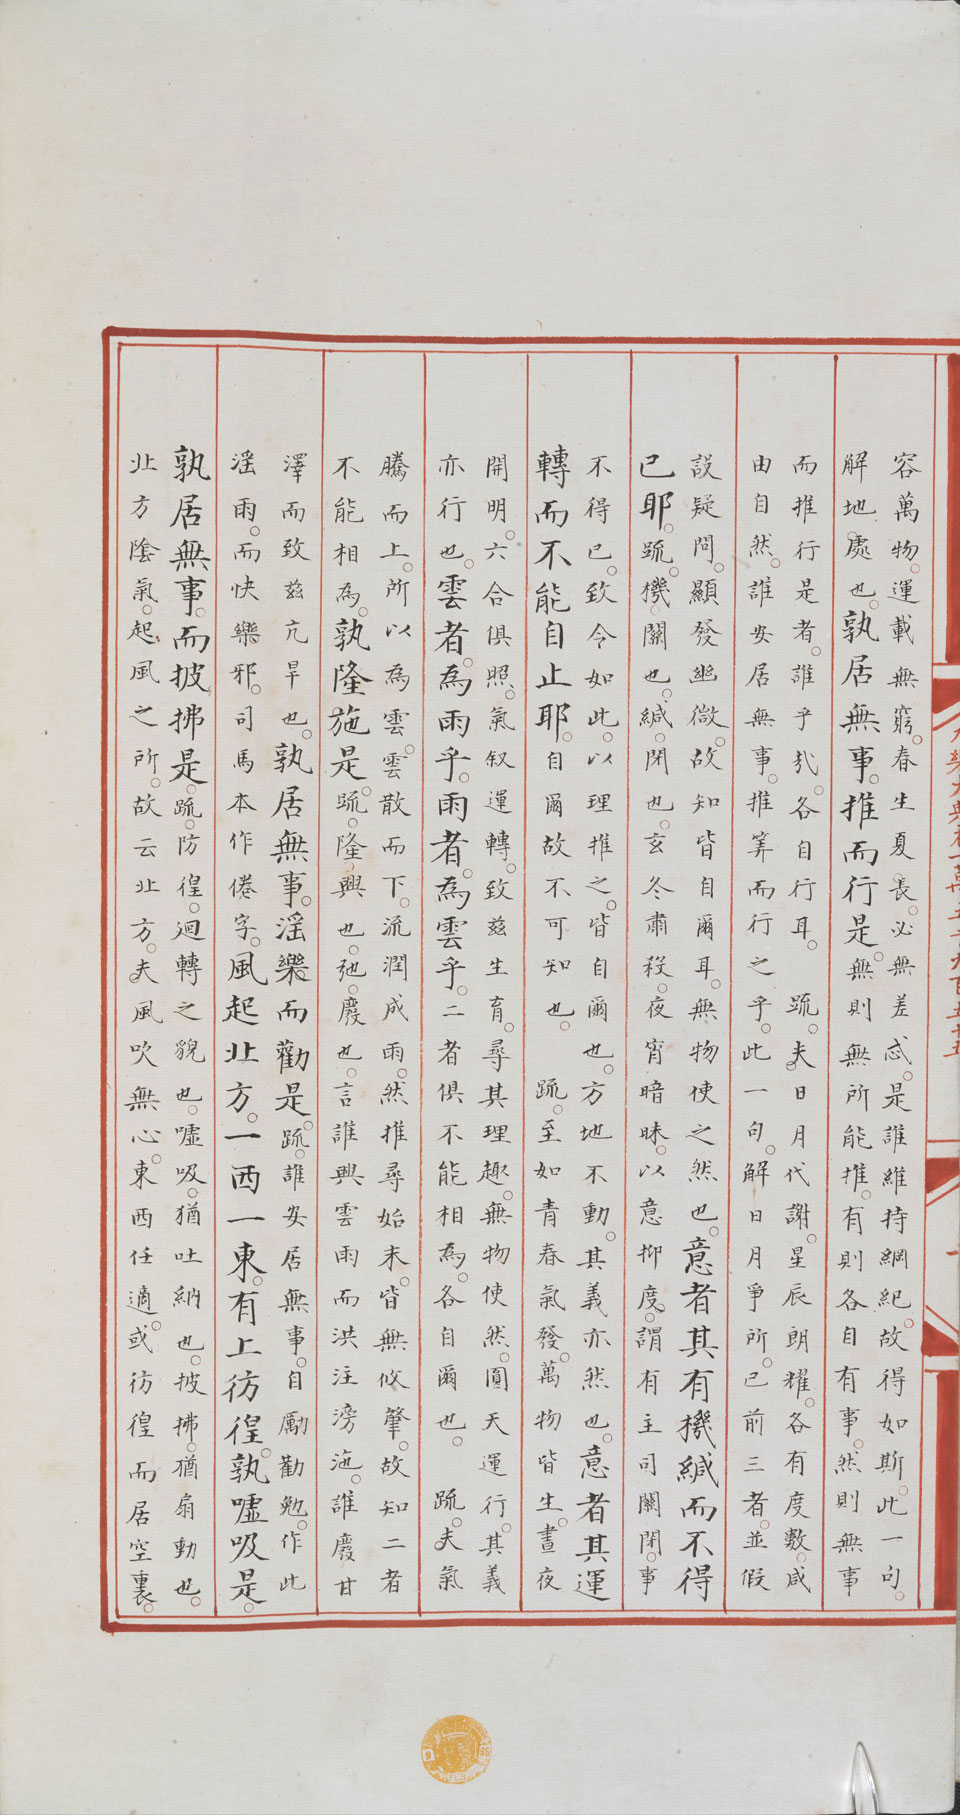 容萬物。運載無窮。春生夏長。必無差忒。是誰維持綱紀。故得如斯。此一句。
解地處也。孰居無事。推而行是。無則無所能推。有則各自有事。然則無事
而推行是者。誰乎㢤。各自行耳。疏。夫日月代謝。星辰朗耀。各有度數。咸
由自然。誰安居無事。推筭而行之乎。此一句。解日月爭所。已前三者。並假
設疑問。顯發幽微。故知皆自爾耳。無物使之然也。意者其有機緘而不得
已耶。疏。機關也。緘。閉也。玄冬肅殺。夜宵暗昧。以意抑度。謂有主司關閉。事
不得已。致令如此。以理推之。皆自爾也。方地不動。其義亦然也。意者其運
轉而不能自止耶。自爾故不可知也。疏。至如青春氣發。萬物皆生。晝夜
開明。六合俱照。氣叙運轉。致茲生育。尋其理趣。無物使然。圓天運行。其義
亦行也。雲者。為雨乎。雨者。為雲乎。二者俱不能相為。各自爾也。疏。夫氣
騰而上。所以為雲。雲散而下。流潤成雨。然推尋始末。皆無攸肇。故知二者
不能相為。孰隆施是。疏。隆。興也。弛。廢也。言誰興雲雨而洪注滂沲。誰廢甘
澤而致茲亢旱也。孰居無事。滛樂而勸是。疏。誰安居無事。自勵勸勉。作此
滛雨。而快樂邪。司馬本作倦字。風起北方。一西一東。有上彷徨。孰嘘吸是。
孰居無事。而披拂是。疏。防徨。迴轉之貌也。嘘吸。猶吐納也。披拂。猶扇動也。
北方隂氣。起風之所。故云北方。夫風吹無心。東西任適。或彷徨而居空裏。